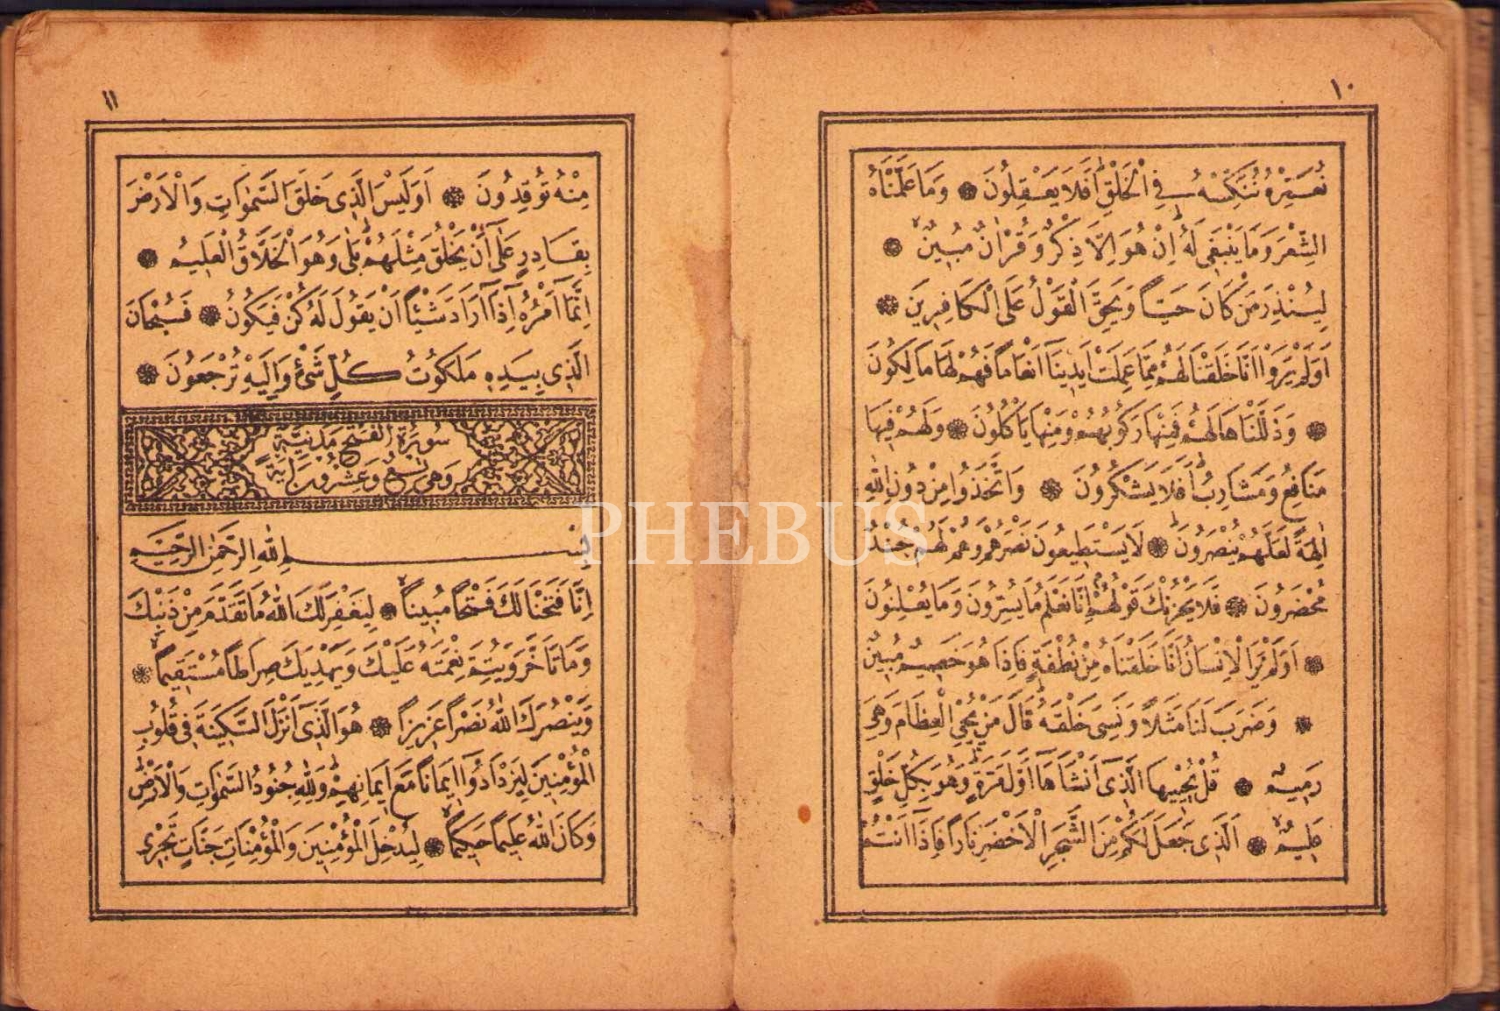 ١٠
نُعَمِّرْهُ نُنَكِّسْهُ فِي الْخَلْقِ اَفَلَا يَعْقِلُونَ وَمَا عَلَّمْنَاهُ
الشِّعْرَ وَمَا يَنْبَغِي لَهُ اِنْ هُوَ اِلَّا ذِكْرٌ وَقُرْاٰنٌ مُبِينٌ
لِيُنْذِرَ مَنْ كَانَ حَيًّا وَيَحِقَّ الْقَوْلُ عَلَى الْكَافِرِينَ
اَوَلَمْ يَرَوْا اَنَّا خَلَقْنَا لَهُمْ مِمَّا عَمِلَتْ اَيْدِينَا اَنْعَامًا فَهُمْ لَهَا مَالِكُونَ
وَذَلَّلْنَاهَا لَهُمْ فَمِنْهَا رَكُوبُهُمْ وَمِنْهَا يَأْكُلُونَ وَلَهُمْ فِيهَا
مَنَافِعُ وَمَشَارِبُ اَفَلَا يَشْكُرُونَ وَاتَّخَذُوا مِنْ دُونِ اللّٰهِ
اٰلِهَةً لَعَلَّهُمْ يُنْصَرُونَ لَا يَسْتَطِيعُونَ نَصْرَهُمْ وَهُمْ لَهُمْ جُنْدٌ
مُحْضَرُونَ فَلَا يَحْزُنْكَ قَوْلُهُمْ اِنَّا نَعْلَمُ مَا يُسِرُّونَ وَمَا يُعْلِنُونَ
اَوَلَمْ يَرَ الْاِنْسَانُ اَنَّا خَلَقْنَاهُ مِنْ نُطْفَةٍ فَاِذَا هُوَ خَصِيمٌ مُبِينٌ
وَضَرَبَ لَنَا مَثَلًا وَنَسِيَ خَلْقَهُ قَالَ مَنْ يُحْيِ الْعِظَامَ وَهِيَ
رَمِيمٌ قُلْ يُحْيِيهَا الَّذِي اَنْشَاَهَا اَوَّلَ مَرَّةٍ وَهُوَ بِكُلِّ خَلْقٍ
عَلِيمٌ اَلَّذِي جَعَلَ لَكُمْ مِنَ الشَّجَرِ الْاَخْضَرِ نَارًا فَاِذَا اَنْتُمْ
١١
مِنْهُ تُوقِدُونَ اَوَلَيْسَ الَّذِي خَلَقَ السَّمٰوَاتِ وَالْاَرْضَ
بِقَادِرٍ عَلٰى اَنْ يَخْلُقَ مِثْلَهُمْ بَلٰى وَهُوَ الْخَلَّاقُ الْعَلِيمُ
اِنَّمَا اَمْرُهُ اِذَا اَرَادَ شَيْئًا اَنْ يَقُولَ لَهُ كُنْ فَيَكُونُ فَسُبْحَانَ
الَّذِي بِيَدِهِ مَلَكُوتُ كُلِّ شَيْءٍ وَاِلَيْهِ تُرْجَعُونَ
سُورَةُ الْفَتْحِ مَدَنِيَّةٌ
وَهِيَ تِسْعٌ وَعِشْرُونَ اٰيَةً
بِسْمِ اللّٰهِ الرَّحْمٰنِ الرَّحِيمِ
اِنَّا فَتَحْنَا لَكَ فَتْحًا مُبِينًا لِيَغْفِرَ لَكَ اللّٰهُ مَا تَقَدَّمَ مِنْ ذَنْبِكَ
وَمَا تَاَخَّرَ وَيُتِمَّ نِعْمَتَهُ عَلَيْكَ وَيَهْدِيَكَ صِرَاطًا مُسْتَقِيمًا
وَيَنْصُرَكَ اللّٰهُ نَصْرًا عَزِيزًا هُوَ الَّذِي اَنْزَلَ السَّكِينَةَ فِي قُلُوبِ
الْمُؤْمِنِينَ لِيَزْدَادُوا اِيمَانًا مَعَ اِيمَانِهِمْ وَلِلّٰهِ جُنُودُ السَّمٰوَاتِ وَالْاَرْضِ
وَكَانَ اللّٰهُ عَلِيمًا حَكِيمًا لِيُدْخِلَ الْمُؤْمِنِينَ وَالْمُؤْمِنَاتِ جَنَّاتٍ تَجْرِي
PHEBUS